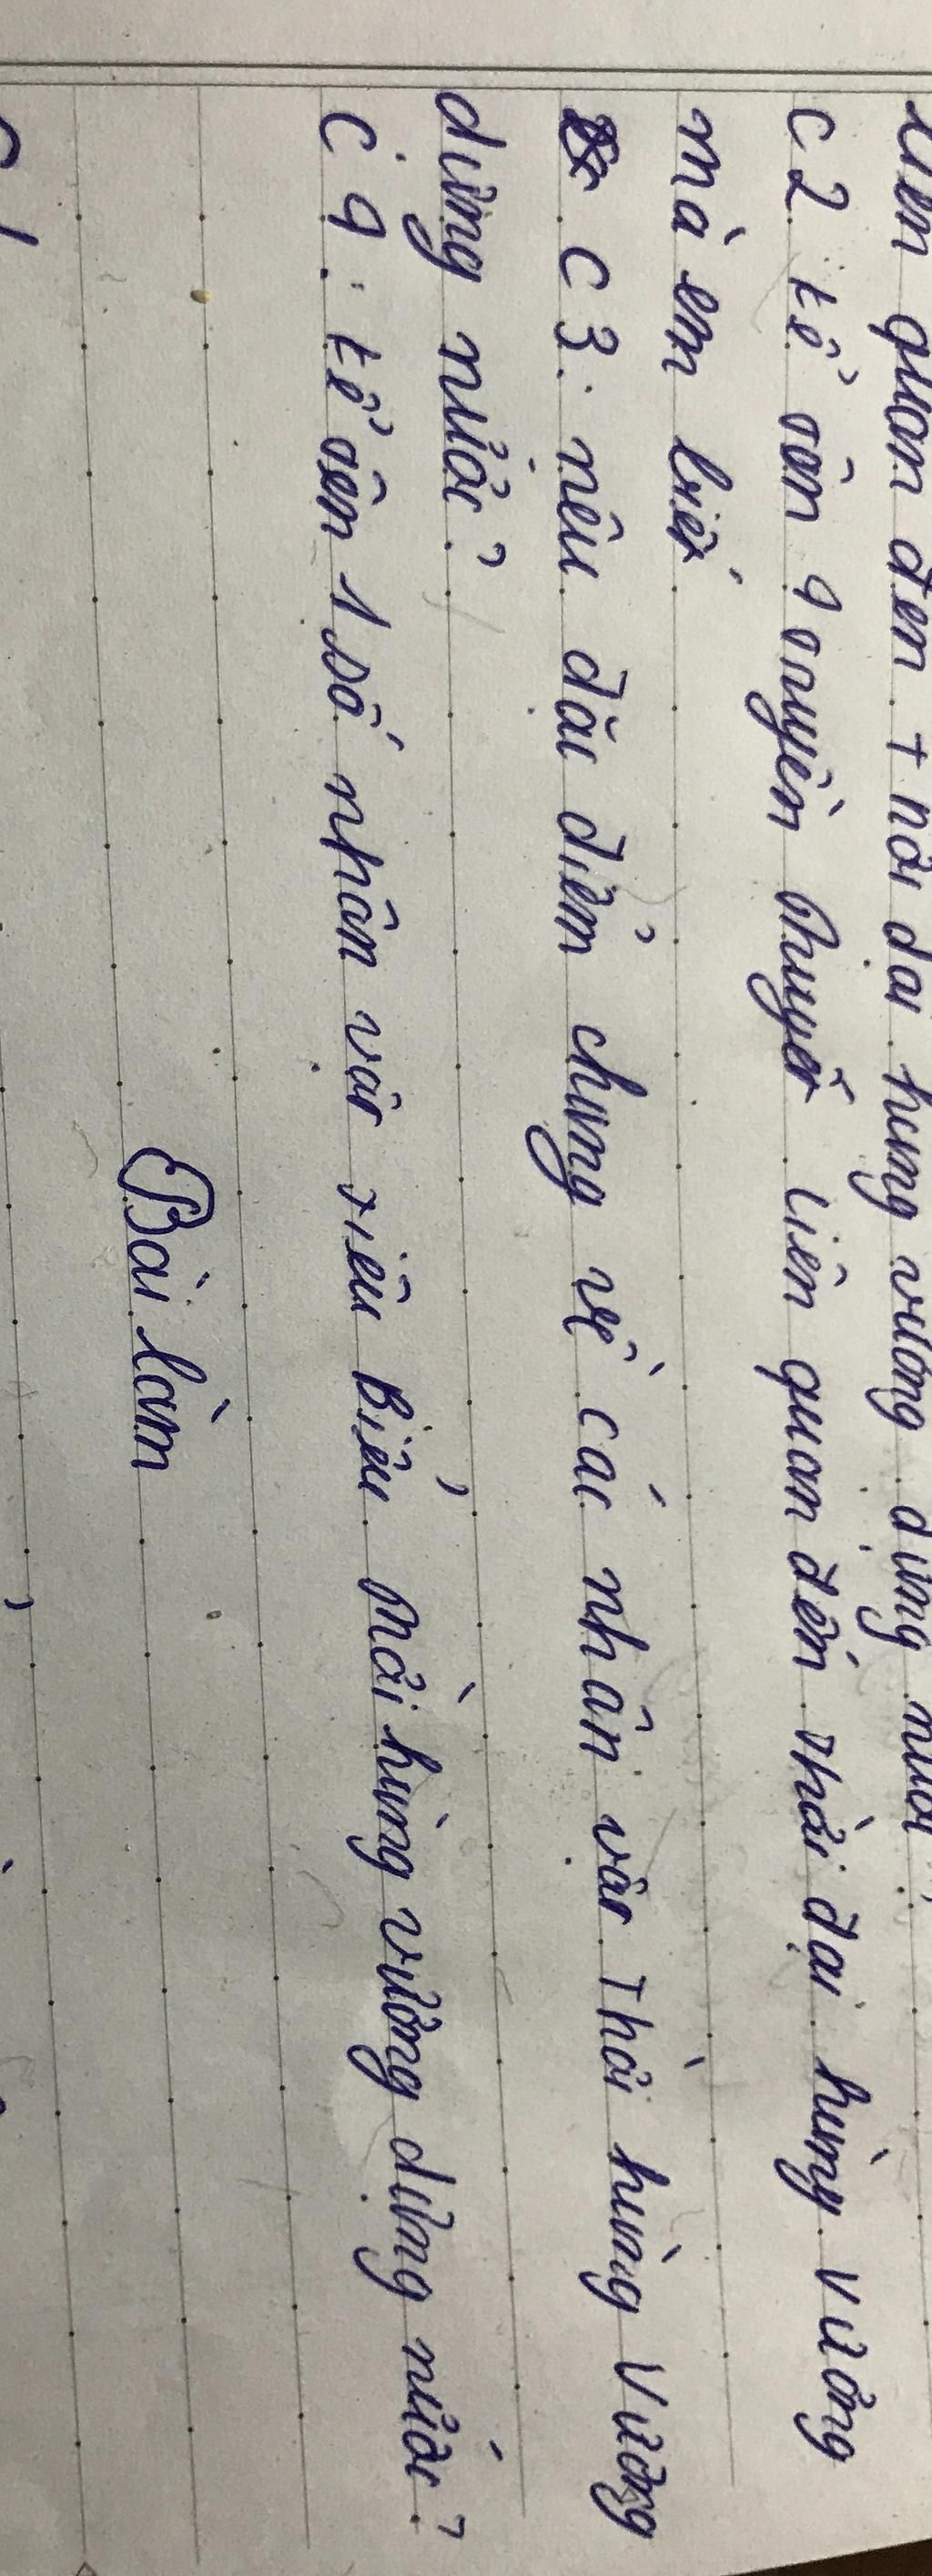 liên quan đến thời đại hùng vương dựng nước?
C2: kể tên 4 truyền thuyết liên quan đến thời đại hùng vương
mà em biết
C3: nêu đặc điểm chung về các nhân vật thời hùng vương
dựng nước?
C4: kể tên 1 số nhân vật tiêu biểu thời hùng vương dựng nước?
Bài làm